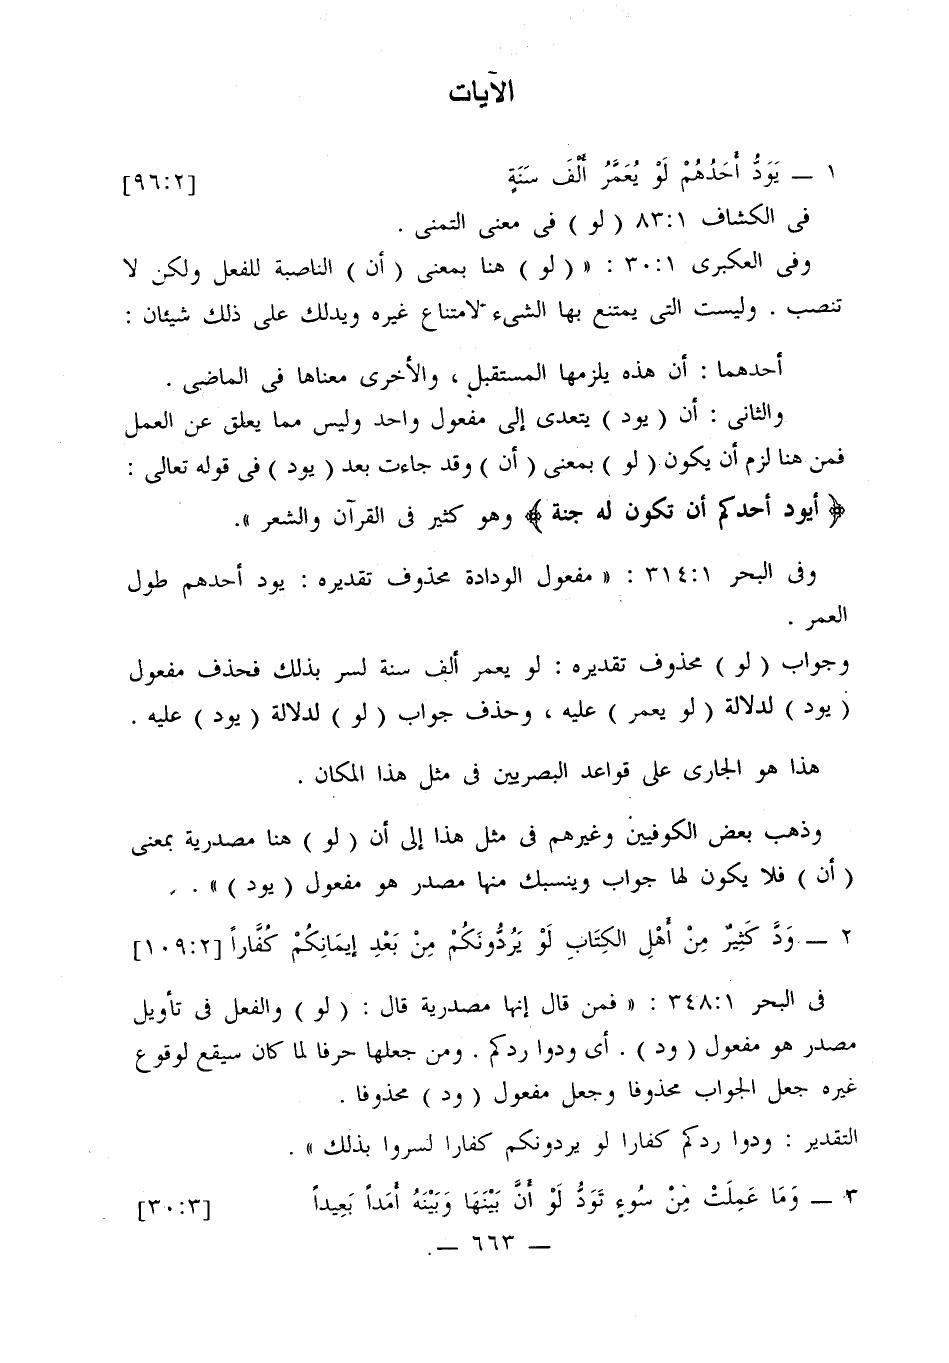 الآيات
١ ــ يَوَدُّ أَحَدُهُمْ لَوْ يُعَمَّرُ أَلْفَ سَنَةٍ [٩٦:٢]
فى الكشاف ٨٣:١ ( لو ) فى معنى التمنى .
وفى العكبرى ٣٠:١ : « ( لو ) هنا بمعنى ( أن ) الناصبة للفعل ولكن لا
تنصب . وليست التى يمتنع بها الشىء لامتناع غيره ويدلك على ذلك شيئان :
أحدهما : أن هذه يلزمها المستقبل ، والأخرى معناها فى الماضى .
والثانى : أن ( يود ) يتعدى إلى مفعول واحد وليس مما يعلق عن العمل
فمن هنا لزم أن يكون ( لو ) بمعنى ( أن ) وقد جاءت بعد ( يود ) فى قوله تعالى :
﴿ أيود أحدكم أن تكون له جنة ﴾ وهو كثير فى القرآن والشعر ».
وفى البحر ٣١٤:١ : « مفعول الودادة محذوف تقديره : يود أحدهم طول
العمر .
وجواب ( لو ) محذوف تقديره : لو يعمر ألف سنة لسر بذلك فحذف مفعول
( يود ) لدلالة ( لو يعمر ) عليه ، وحذف جواب ( لو ) لدلالة ( يود ) عليه .
هذا هو الجارى على قواعد البصريين فى مثل هذا المكان .
وذهب بعض الكوفيين وغيرهم فى مثل هذا إلى أن ( لو ) هنا مصدرية بمعنى
( أن ) فلا يكون لها جواب وينسبك منها مصدر هو مفعول ( يود ) » .
٢ ــ وَدَّ كَثِيرٌ مِنْ أَهْلِ الكِتَابِ لَوْ يَرُدُّونَكُمْ مِنْ بَعْدِ إِيمَانِكُمْ كُفَّاراً [١٠٩:٢]
فى البحر ٣٤٨:١ : « فمن قال إنها مصدرية قال : ( لو ) والفعل فى تأويل
مصدر هو مفعول ( ود ) . أى ودوا ردكم . ومن جعلها حرفا لما كان سيقع لوقوع
غيره جعل الجواب محذوفا وجعل مفعول ( ود ) محذوفا .
التقدير : ودوا ردكم كفارا لو يردونكم كفارا لسروا بذلك » .
٣ ــ وَمَا عَمِلَتْ مِنْ سُوءٍ تَوَدُّ لَوْ أَنَّ بَيْنَهَا وَبَيْنَهُ أَمَداً بَعِيداً [٣٠:٣]
ــ ٦٦٣ ــ